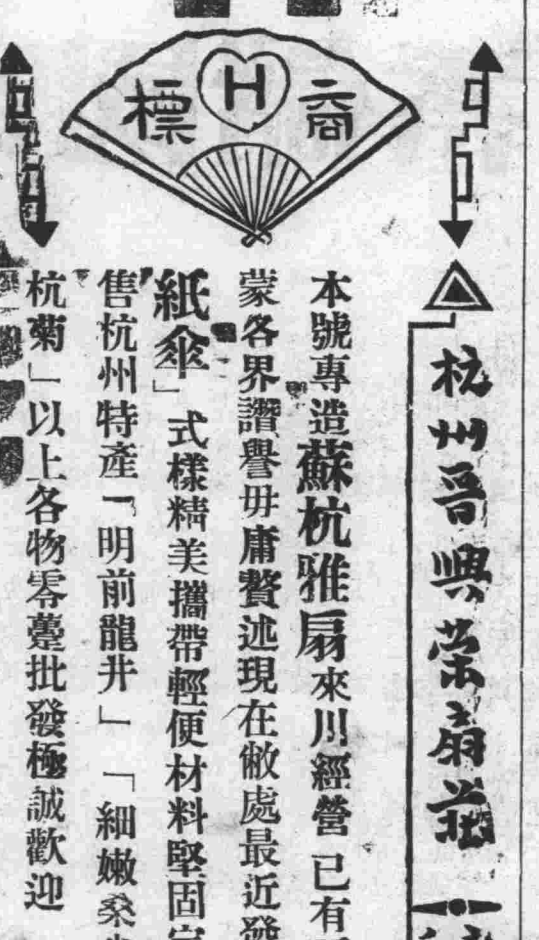 商 H 標
杭州晋興榮扇莊
本號專造蘇杭雅扇來川經營已有
蒙各界讚譽毋庸贅述現在敝處最近發
紙傘」式樣精美攜帶輕便材料堅固
售杭州特產「明前龍井」「細嫩桑
杭菊」以上各物零躉批發極誠歡迎